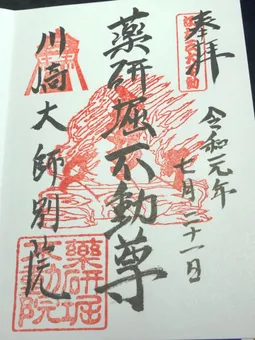 奉拝
令和元年
七月二十一日
薬研堀不動尊
川崎大師別院
薬研堀
不動院